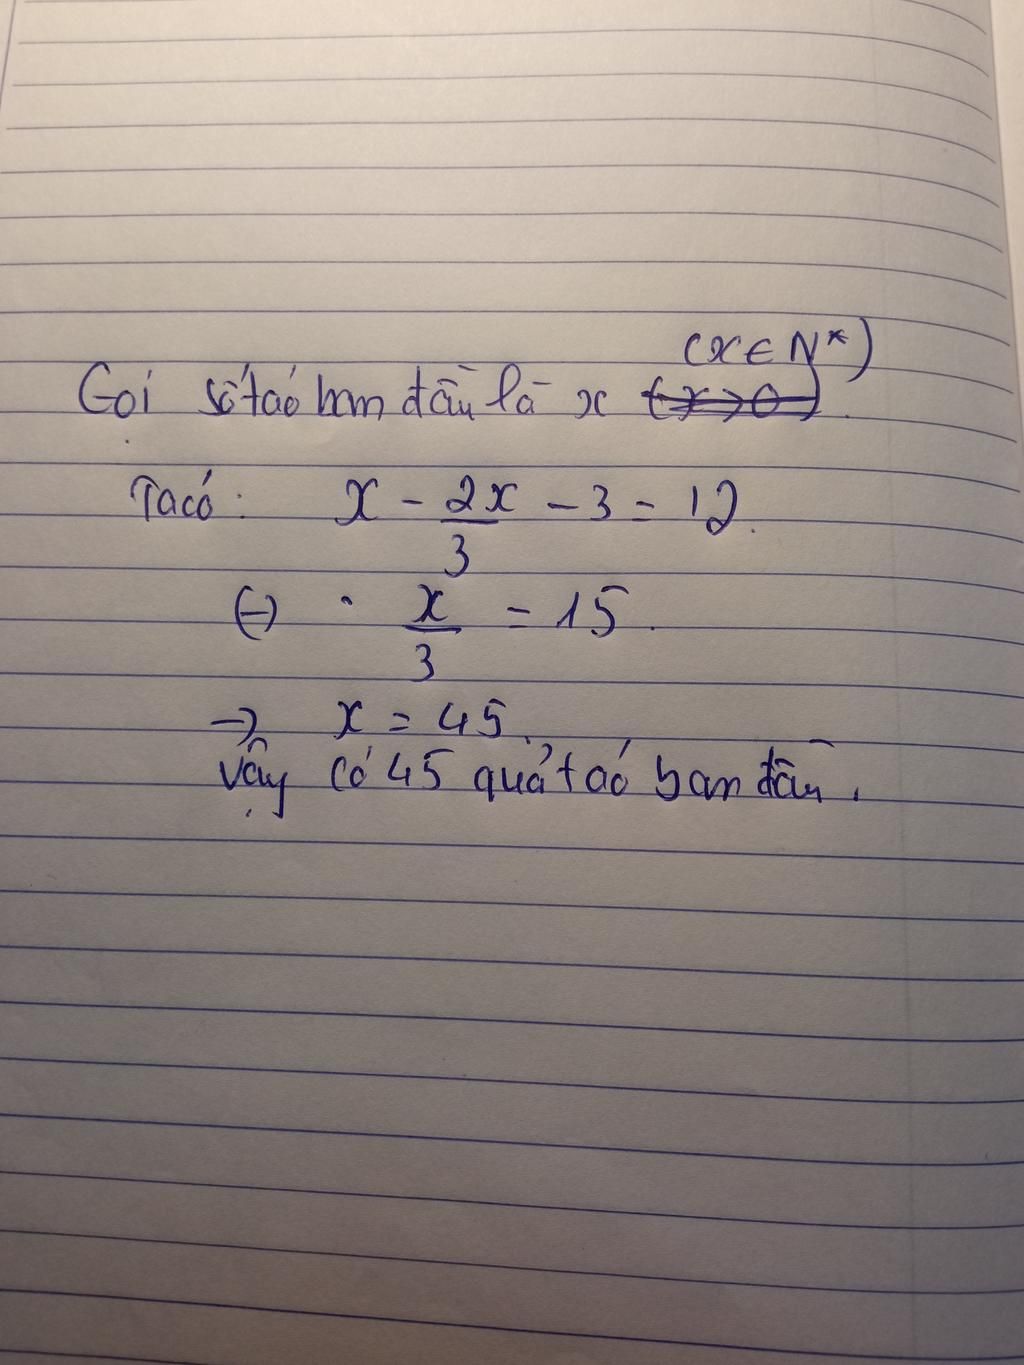 (x ∈ N*)
Gọi số táo ban đầu là x (x > 0).
Ta có: x - 2x/3 - 3 = 12.
(-) x/3 = 15.
→ x = 45.
Vậy có 45 quả táo ban đầu.